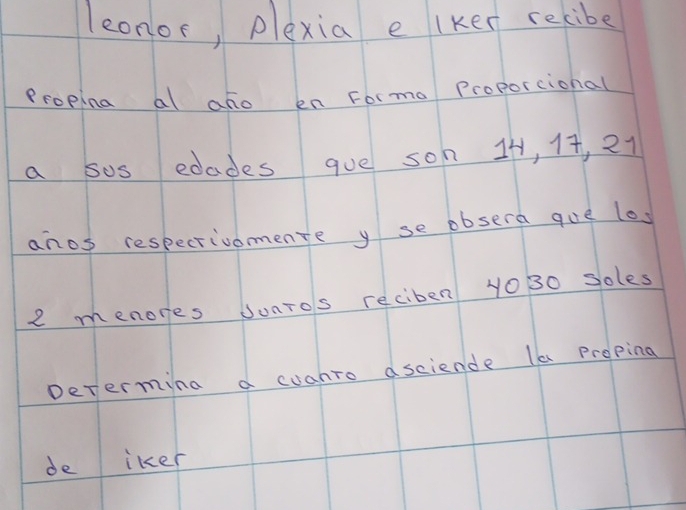 leonor, Alexia e Iker recibe
Propina al año en Forma Proporcional
a sus edades que son 14, 17, 21
años respectivamente y se obsera que los
2 menores Juntos reciben 4030 soles
Determina a cuanto asciende la Propina
de iker